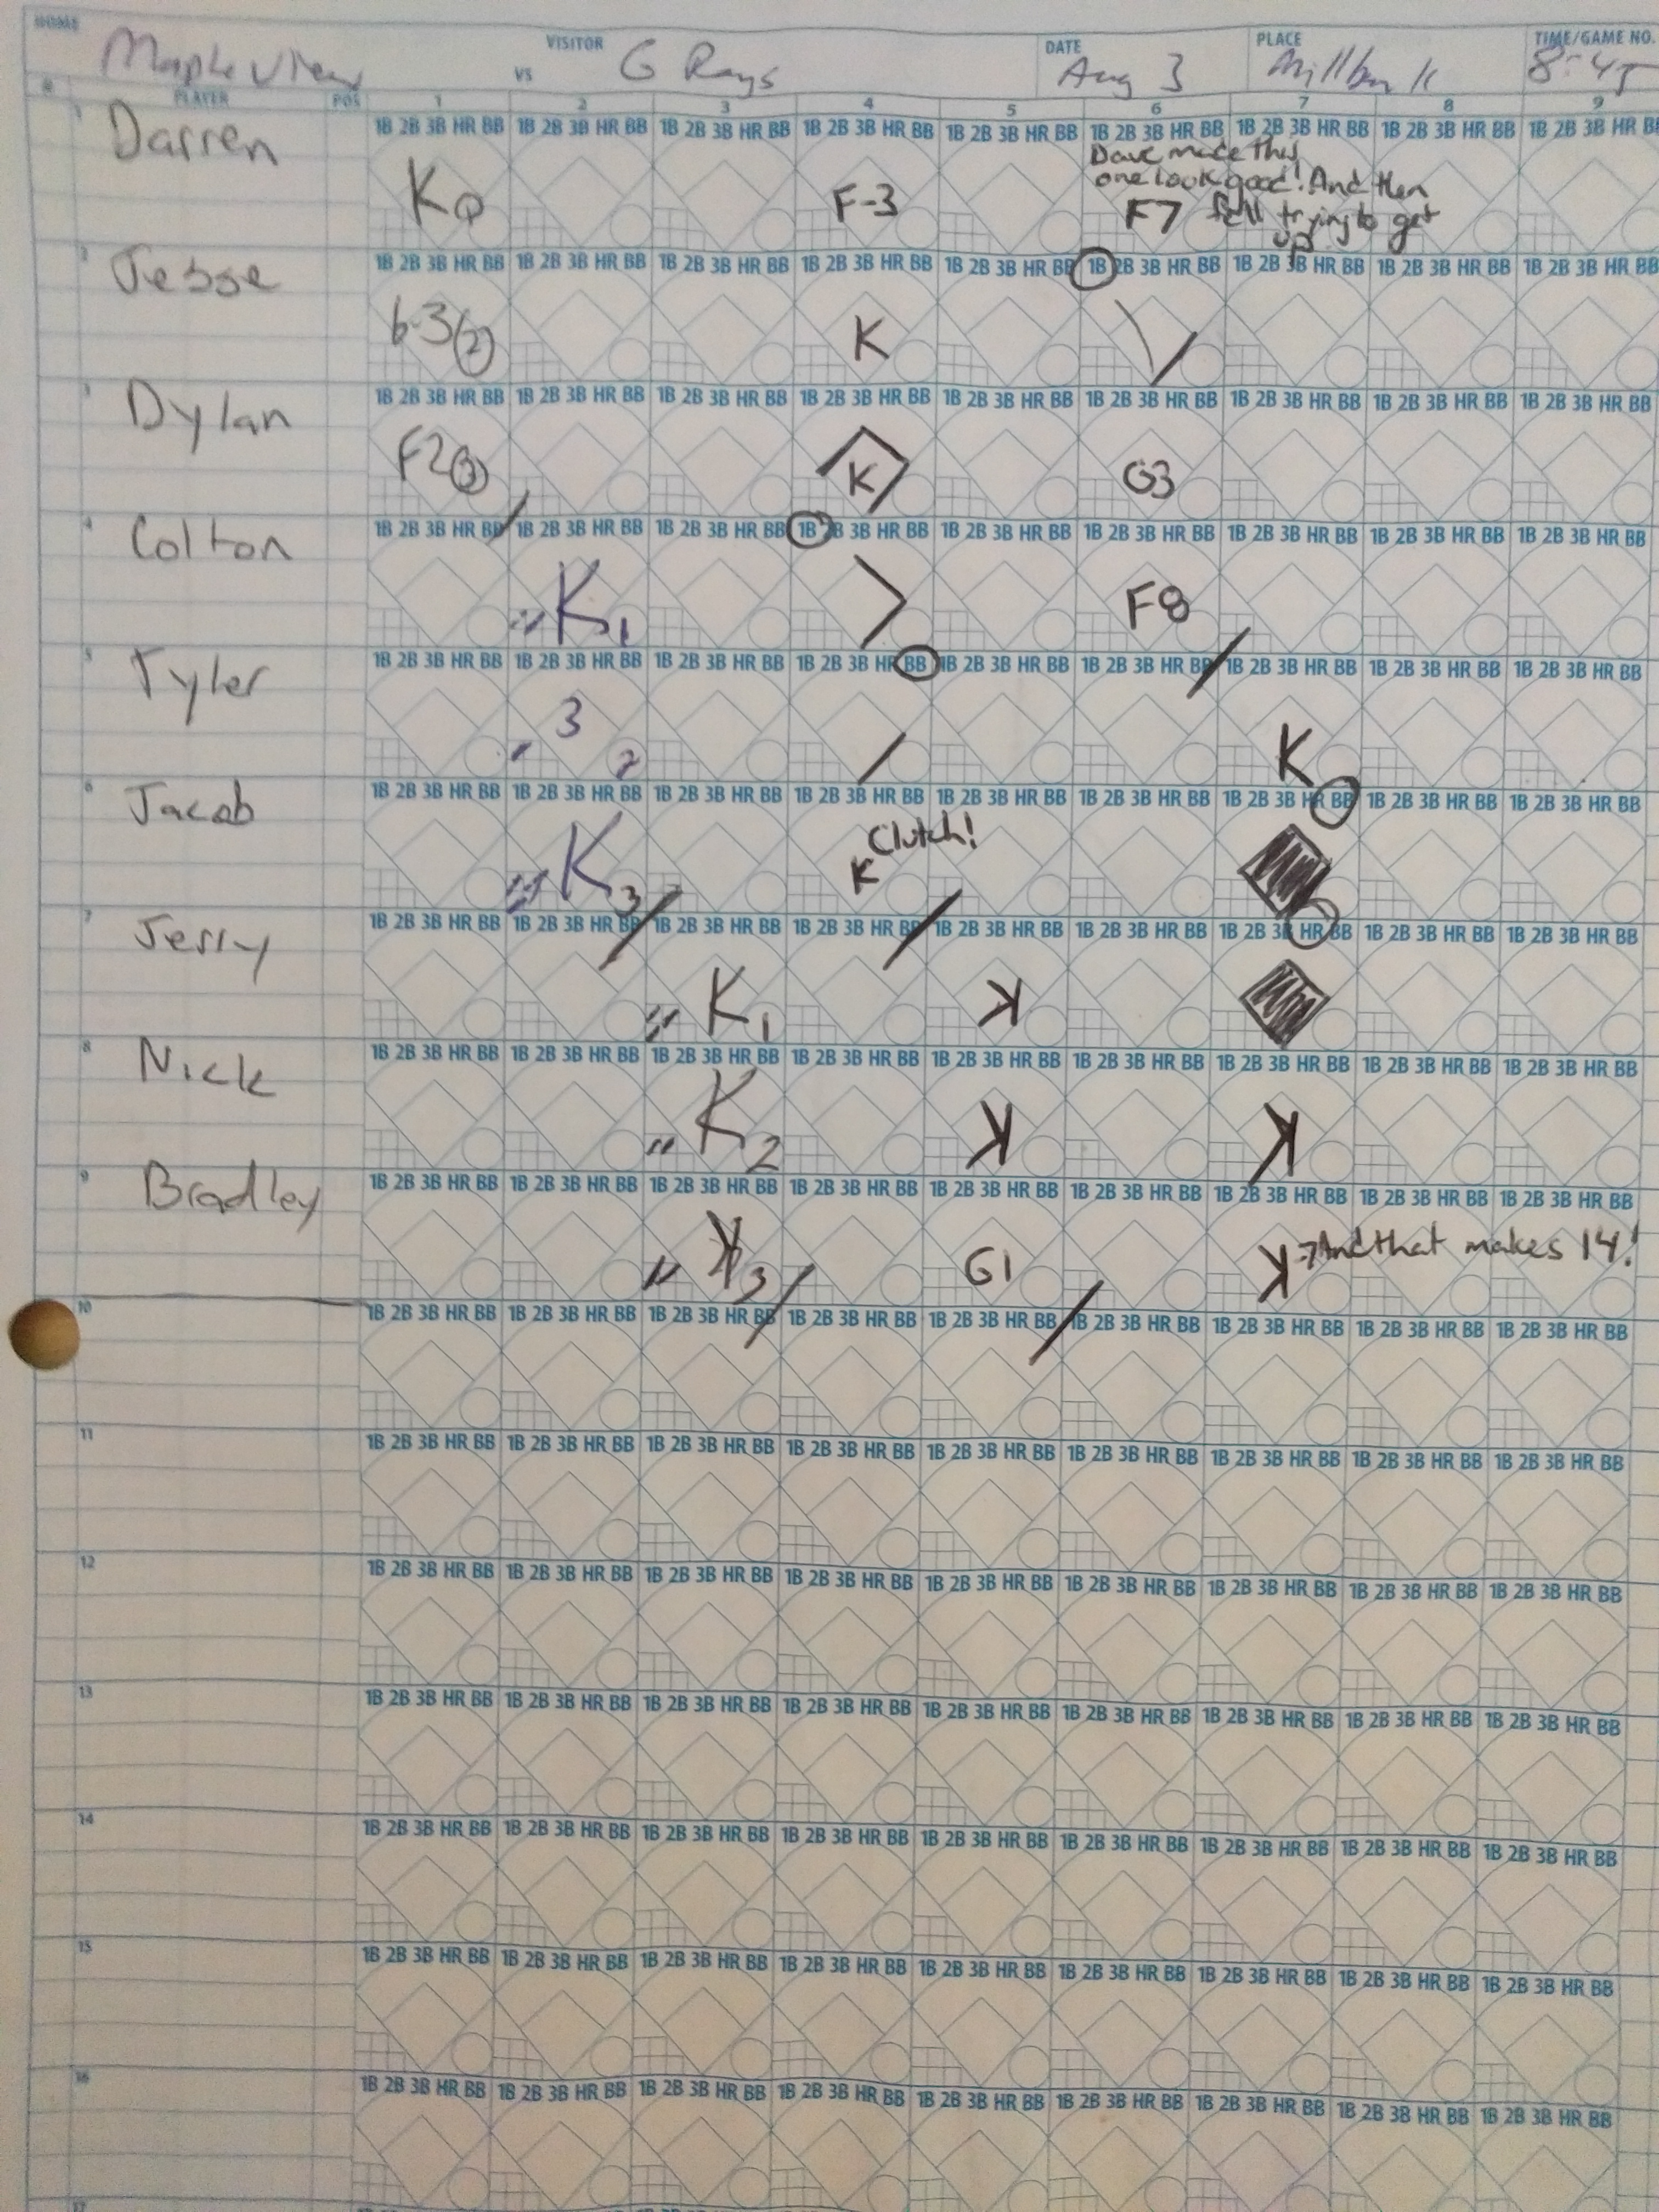 HOME VISITOR DATE PLACE TIME/GAME NO.
Maple View vs G Rays Aug 3 Millbank 8:45
# PLAYER POS 1 2 3 4 5 6 7 8 9
1 1B 2B 3B HR BB 1B 2B 3B HR BB 1B 2B 3B HR BB 1B 2B 3B HR BB 1B 2B 3B HR BB 1B 2B 3B HR BB 1B 2B 3B HR BB 1B 2B 3B HR BB 1B 2B 3B HR B
Darren K F-3 Dave made this
one look good! And then
F7 fell trying to get
up
2 1B 2B 3B HR BB 1B 2B 3B HR BB 1B 2B 3B HR BB 1B 2B 3B HR BB 1B 2B 3B HR BB 1B 2B 3B HR BB 1B 2B 3B HR BB 1B 2B 3B HR BB 1B 2B 3B HR BB
Jesse 6-3 2 K
3 1B 2B 3B HR BB 1B 2B 3B HR BB 1B 2B 3B HR BB 1B 2B 3B HR BB 1B 2B 3B HR BB 1B 2B 3B HR BB 1B 2B 3B HR BB 1B 2B 3B HR BB 1B 2B 3B HR BB
Dylan F2 3 K G3
4 1B 2B 3B HR BB 1B 2B 3B HR BB 1B 2B 3B HR BB 1B 2B 3B HR BB 1B 2B 3B HR BB 1B 2B 3B HR BB 1B 2B 3B HR BB 1B 2B 3B HR BB 1B 2B 3B HR BB
Colton K 1 F8
5 1B 2B 3B HR BB 1B 2B 3B HR BB 1B 2B 3B HR BB 1B 2B 3B HR BB 1B 2B 3B HR BB 1B 2B 3B HR BB 1B 2B 3B HR BB 1B 2B 3B HR BB 1B 2B 3B HR BB
Tyler 3 2 K
6 1B 2B 3B HR BB 1B 2B 3B HR BB 1B 2B 3B HR BB 1B 2B 3B HR BB 1B 2B 3B HR BB 1B 2B 3B HR BB 1B 2B 3B HR BB 1B 2B 3B HR BB 1B 2B 3B HR BB
Jacob K 3 K Clutch!
7 1B 2B 3B HR BB 1B 2B 3B HR BB 1B 2B 3B HR BB 1B 2B 3B HR BB 1B 2B 3B HR BB 1B 2B 3B HR BB 1B 2B 3B HR BB 1B 2B 3B HR BB 1B 2B 3B HR BB
Jerry K 1 K
8 1B 2B 3B HR BB 1B 2B 3B HR BB 1B 2B 3B HR BB 1B 2B 3B HR BB 1B 2B 3B HR BB 1B 2B 3B HR BB 1B 2B 3B HR BB 1B 2B 3B HR BB 1B 2B 3B HR BB
Nick K 2 K K
9 1B 2B 3B HR BB 1B 2B 3B HR BB 1B 2B 3B HR BB 1B 2B 3B HR BB 1B 2B 3B HR BB 1B 2B 3B HR BB 1B 2B 3B HR BB 1B 2B 3B HR BB 1B 2B 3B HR BB
Bradley K 3 G1 K → And that makes 14!
10 1B 2B 3B HR BB 1B 2B 3B HR BB 1B 2B 3B HR BB 1B 2B 3B HR BB 1B 2B 3B HR BB 1B 2B 3B HR BB 1B 2B 3B HR BB 1B 2B 3B HR BB 1B 2B 3B HR BB
11 1B 2B 3B HR BB 1B 2B 3B HR BB 1B 2B 3B HR BB 1B 2B 3B HR BB 1B 2B 3B HR BB 1B 2B 3B HR BB 1B 2B 3B HR BB 1B 2B 3B HR BB 1B 2B 3B HR BB
12 1B 2B 3B HR BB 1B 2B 3B HR BB 1B 2B 3B HR BB 1B 2B 3B HR BB 1B 2B 3B HR BB 1B 2B 3B HR BB 1B 2B 3B HR BB 1B 2B 3B HR BB 1B 2B 3B HR BB
13 1B 2B 3B HR BB 1B 2B 3B HR BB 1B 2B 3B HR BB 1B 2B 3B HR BB 1B 2B 3B HR BB 1B 2B 3B HR BB 1B 2B 3B HR BB 1B 2B 3B HR BB 1B 2B 3B HR BB
14 1B 2B 3B HR BB 1B 2B 3B HR BB 1B 2B 3B HR BB 1B 2B 3B HR BB 1B 2B 3B HR BB 1B 2B 3B HR BB 1B 2B 3B HR BB 1B 2B 3B HR BB 1B 2B 3B HR BB
15 1B 2B 3B HR BB 1B 2B 3B HR BB 1B 2B 3B HR BB 1B 2B 3B HR BB 1B 2B 3B HR BB 1B 2B 3B HR BB 1B 2B 3B HR BB 1B 2B 3B HR BB 1B 2B 3B HR BB
16 1B 2B 3B HR BB 1B 2B 3B HR BB 1B 2B 3B HR BB 1B 2B 3B HR BB 1B 2B 3B HR BB 1B 2B 3B HR BB 1B 2B 3B HR BB 1B 2B 3B HR BB 1B 2B 3B HR BB
17